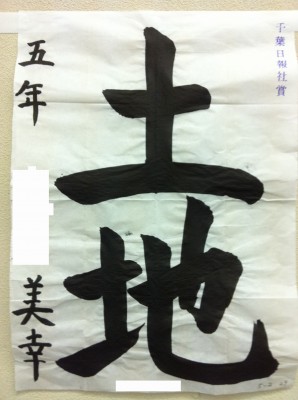 千葉日報社賞
土地
五年
美幸